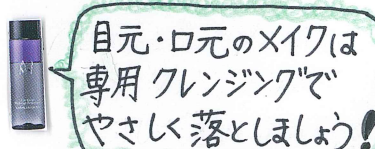 目元・口元のメイクは
専用クレンジングで
やさしく落としましょう!